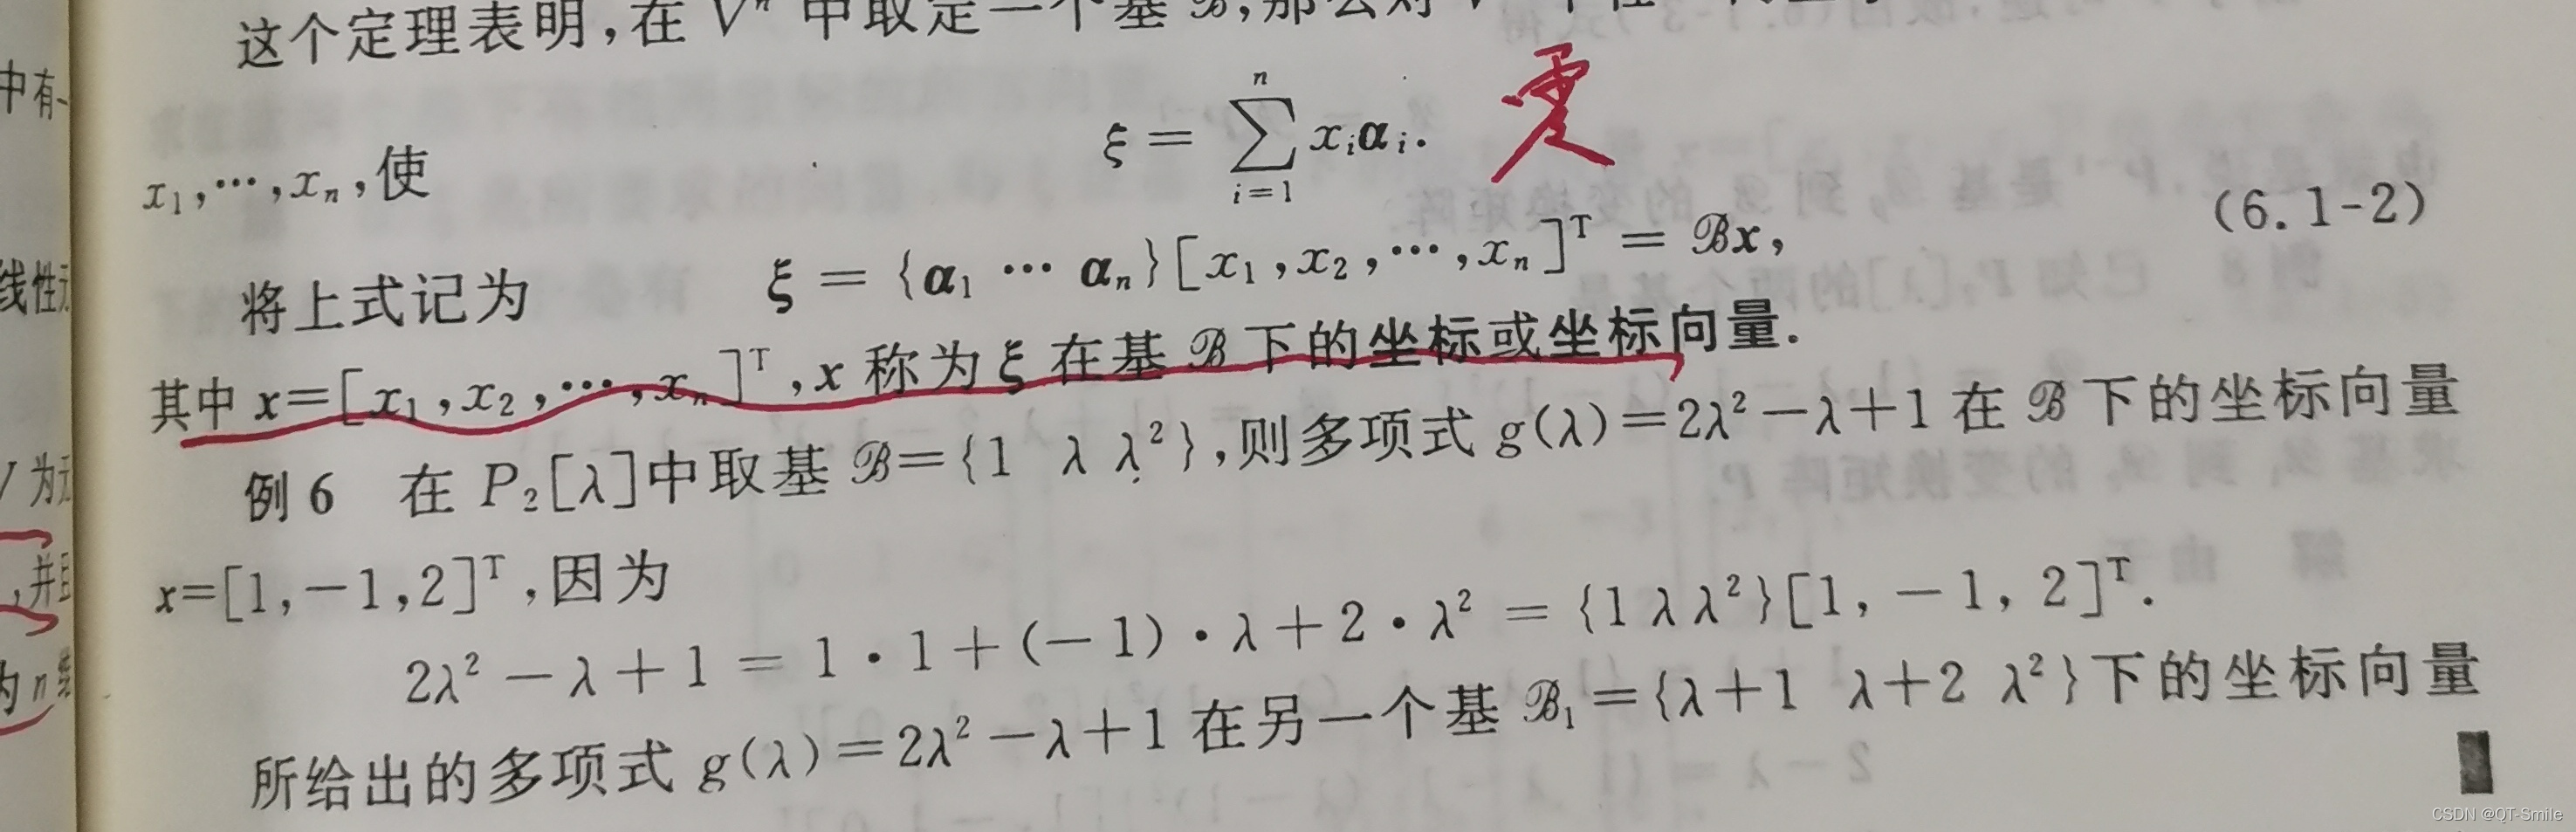 这个定理表明,在 Vⁿ 中取定一个基 ℬ,那么对
ξ = ∑ⁿᵢ₌₁ xᵢαᵢ.
x₁,⋯,xₙ,使
(6.1-2)
将上式记为 ξ = {α₁ ⋯ αₙ}[x₁,x₂,⋯,xₙ]ᵀ = ℬx,
其中 x=[x₁,x₂,⋯,xₙ]ᵀ,x 称为 ξ 在基 ℬ 下的坐标或坐标向量.
例 6 在 P₂[λ]中取基 ℬ={1 λ λ²},则多项式 g(λ)=2λ²-λ+1 在 ℬ 下的坐标向量
x=[1,-1,2]ᵀ,因为
2λ²-λ+1 = 1·1+(-1)·λ+2·λ² = {1 λ λ²}[1,-1,2]ᵀ.
所给出的多项式 g(λ)=2λ²-λ+1 在另一个基 ℬ₁={λ+1 λ+2 λ²}下的坐标向量
中有
线性
为
,并且
为 n
CSDN @QT-Smile